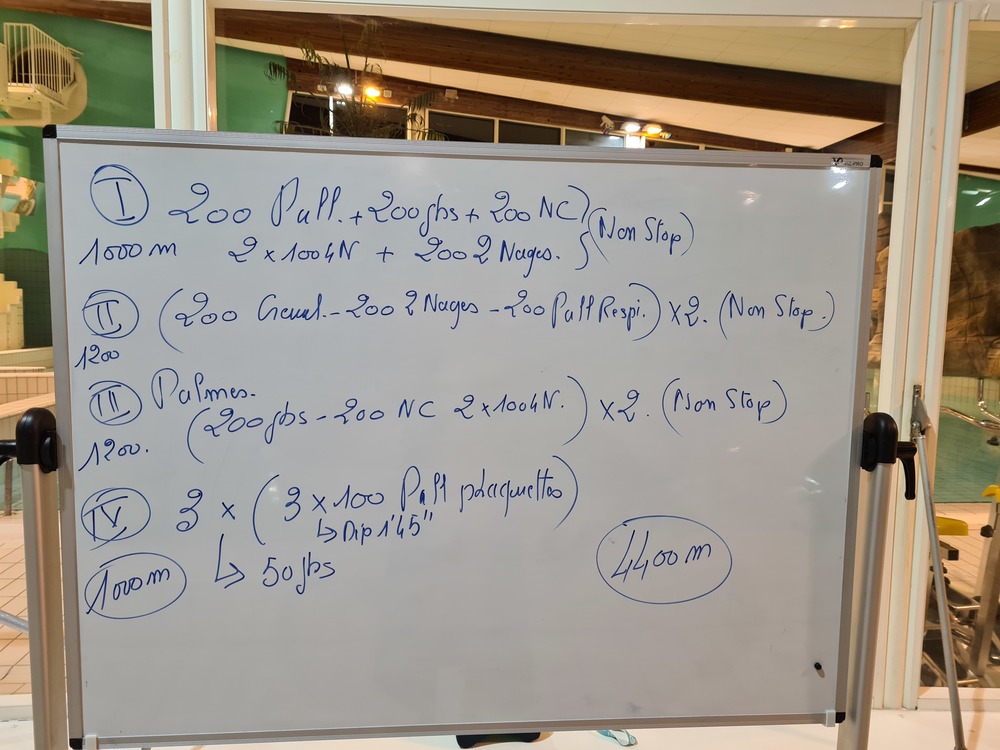 I 200 Pull. + 200 jbs + 200 NC
1000 m 2 x 100 4N + 200 2 Nages. } (Non Stop)
II (200 Crawl. - 200 2 Nages - 200 Pull Respi.) x 2. (Non Stop.)
1200
III Palmes.
1200. (200 jbs - 200 NC 2 x 100 4N.) x 2. (Non Stop)
IV 3 x (3 x 100 Pull plaquettes)
↳ Dép 1'45"
1000 m ↳ 50 jbs
4400 m